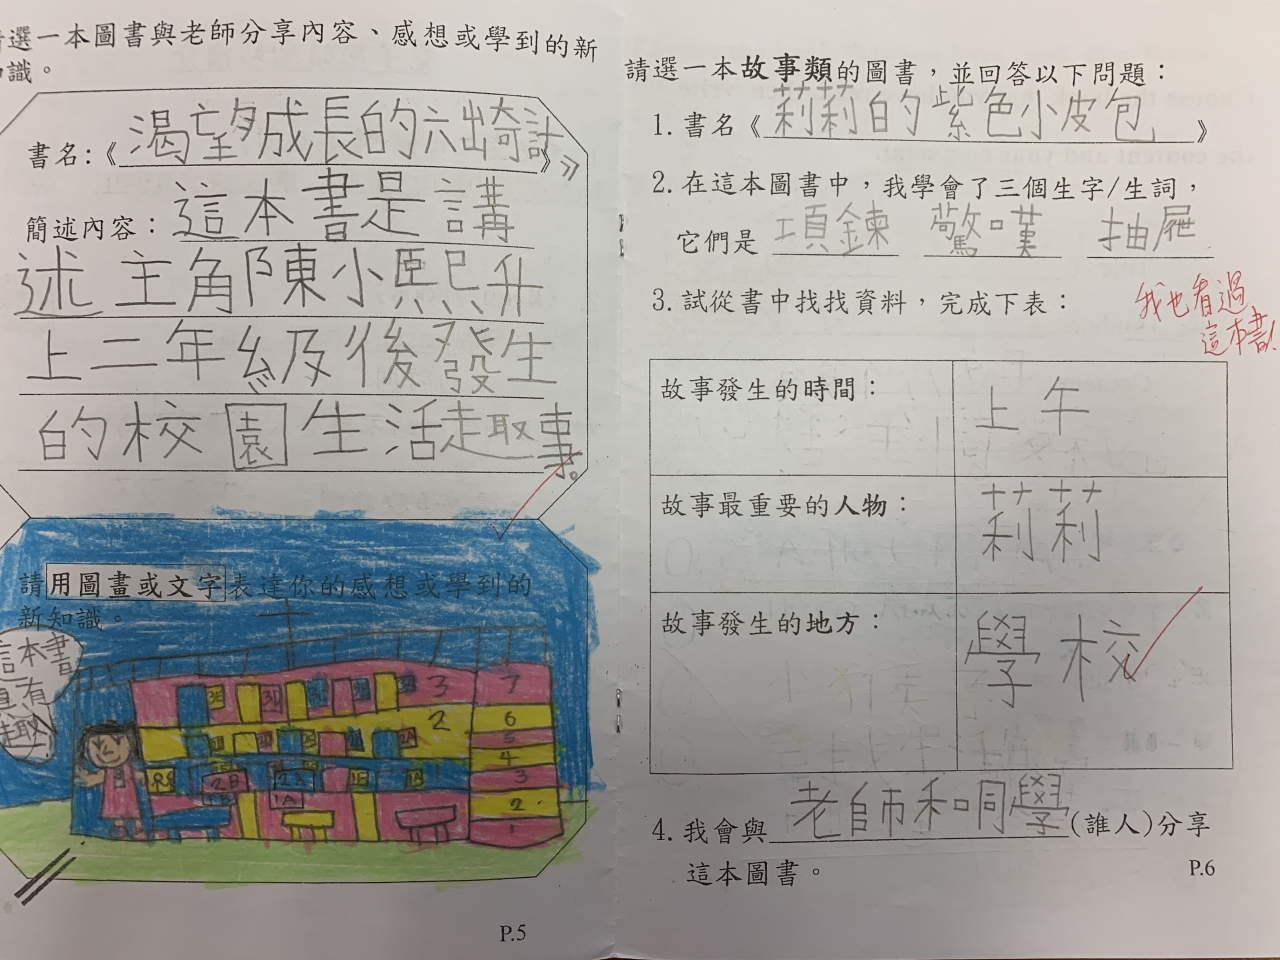 請選一本圖書與老師分享內容、感想或學到的新
知識。
書名：《渴望成長的六出奇計》
簡述內容：這本書是講
述主角陳小熙升
上二年級後發生
的校園生活趣事。
請用圖畫或文字表達你的感想或學到的
新知識。
這本書
真有
趣
3 7
2 6
5
4
3
2
1
3D
2A
2B 2A 1E 1A
1B 1A
P.5
請選一本故事類的圖書，並回答以下問題：
1. 書名《莉莉的紫色小皮包》
2. 在這本圖書中，我學會了三個生字/生詞，
它們是 項鍊 驚嘆 抽屜
3. 試從書中找找資料，完成下表：
我也看過
這本書！
故事發生的時間： 上午
故事最重要的人物： 莉莉
故事發生的地方： 學校
4. 我會與老師和同學(誰人)分享
這本圖書。
P.6